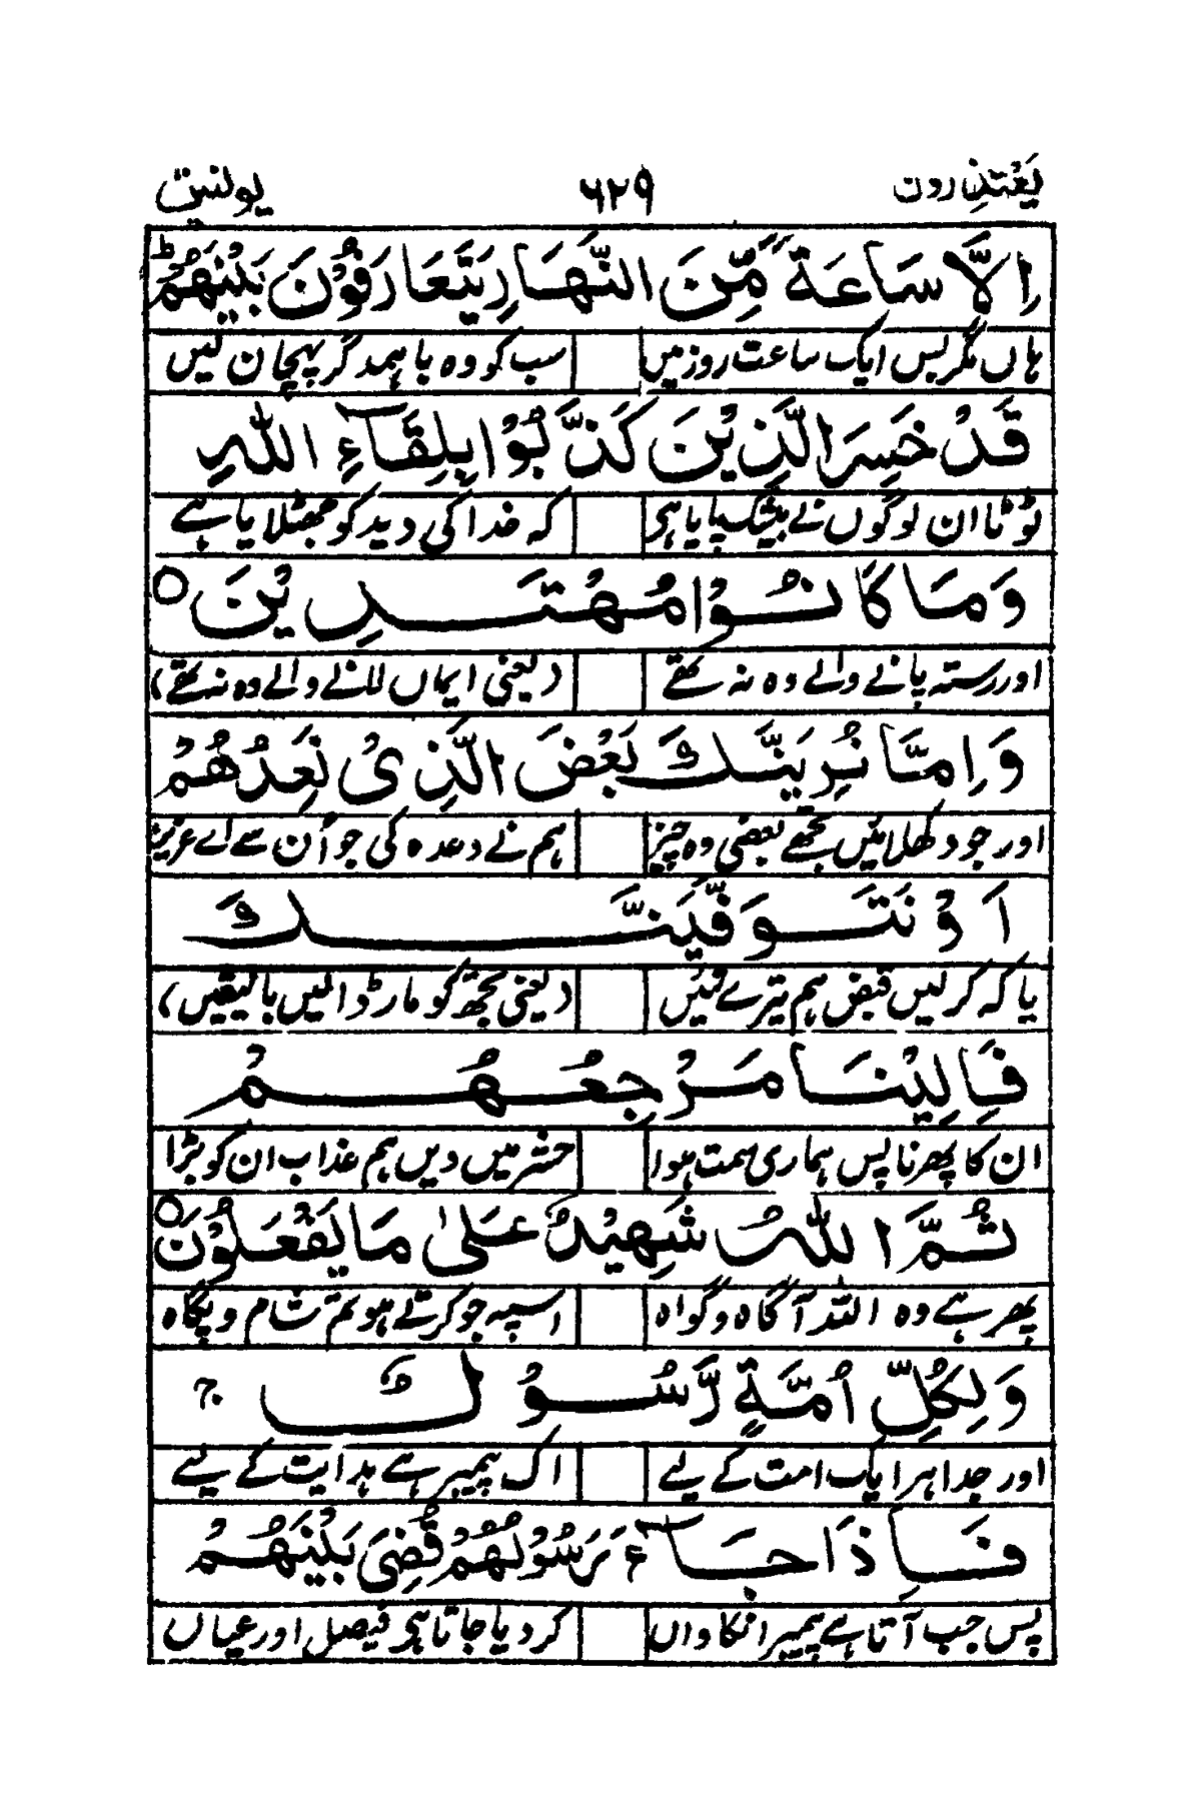 یعتذرون ۶۲۹ یونس
اِلَّا سَاعَةً مِّنَ النَّهَارِ يَتَعَارَفُوْنَ بَيْنَهُمْ ؕ
ہاں مگر بس ایک ساعت روز میں سب کو وہ باہمدگر پہچان لیں
قَدْ خَسِرَ الَّذِيْنَ كَذَّبُوْا بِلِقَآءِ اللّٰهِ
ٹوٹا ان لوگوں نے بیشک پایا ہی کہ خدا کی دید کو جھٹلا یا ہے
وَمَا كَانُوْا مُهْتَدِيْنَ ○
اور رستہ پانے والے وہ نہ تھے (یعنی ایماں لانے والے وہ نہ تھے)
وَاِمَّا نُرِيَنَّكَ بَعْضَ الَّذِىْ نَعِدُهُمْ
اور جو دکھلائیں تجھے بعضی وہ چیز ہم نے وعدہ کی جو اُن سے اے عزیز
اَوْ نَتَوَفَّيَنَّكَ
یا کہ کر لیں قبض ہم تیرے تئیں (یعنی تجھ کو مار ڈالیں بالیقیں)
فَاِلَيْنَا مَرْجِعُهُمْ
ان کا پھرنا پس ہماری سمت ہوا حشر میں دیں ہم عذاب ان کو بڑا
ثُمَّ اللّٰهُ شَهِيْدٌ عَلٰى مَا يَفْعَلُوْنَ ○
پھر ہے وہ اللہ آگاہ و گواہ اسپہ جو کرتے ہو تم شام و پگاہ
وَلِكُلِّ اُمَّةٍ رَّسُوْلٌ ۚ
اور جدا ہر ایک امت کے لیے اک پیمبر ہے ہدایت کے لیے
فَاِذَا جَآءَ رَسُوْلُهُمْ قُضِىَ بَيْنَهُمْ
پس جب آتا ہے پیمبر انکا واں کر دیا جاتا ہی فیصل اور عیاں